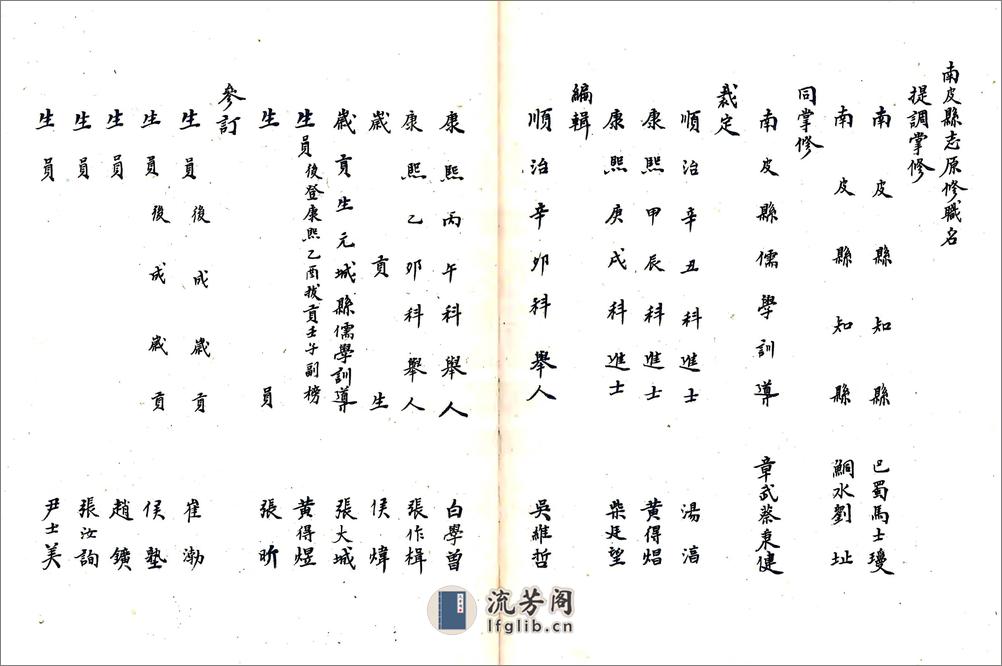 南皮縣志原修職名
提調掌修
南皮縣知縣 巴蜀馬士瓊
南皮縣知縣 鮦水劉址
同掌修
南皮縣儒學訓導 章武蔡秉健
裁定
順治辛丑科進士 湯滈
康熙甲辰科進士 黃得焻
康熙庚戌科進士 柴廷望
編輯
順治辛卯科舉人 吳維哲
康熙丙午科舉人 白學曾
康熙乙卯科舉人 張作楫
歲貢生 侯煒
歲貢生元城縣儒學訓導 張大城
生員後登康熙乙酉拔貢壬午副榜 黃得煜
生員 張昕
參訂
生員後成歲貢 崔渤
生員後成歲貢 侯塾
生員 趙鑛
生員 張汝詢
生員 尹士美
流芳阁
lfglib.cn